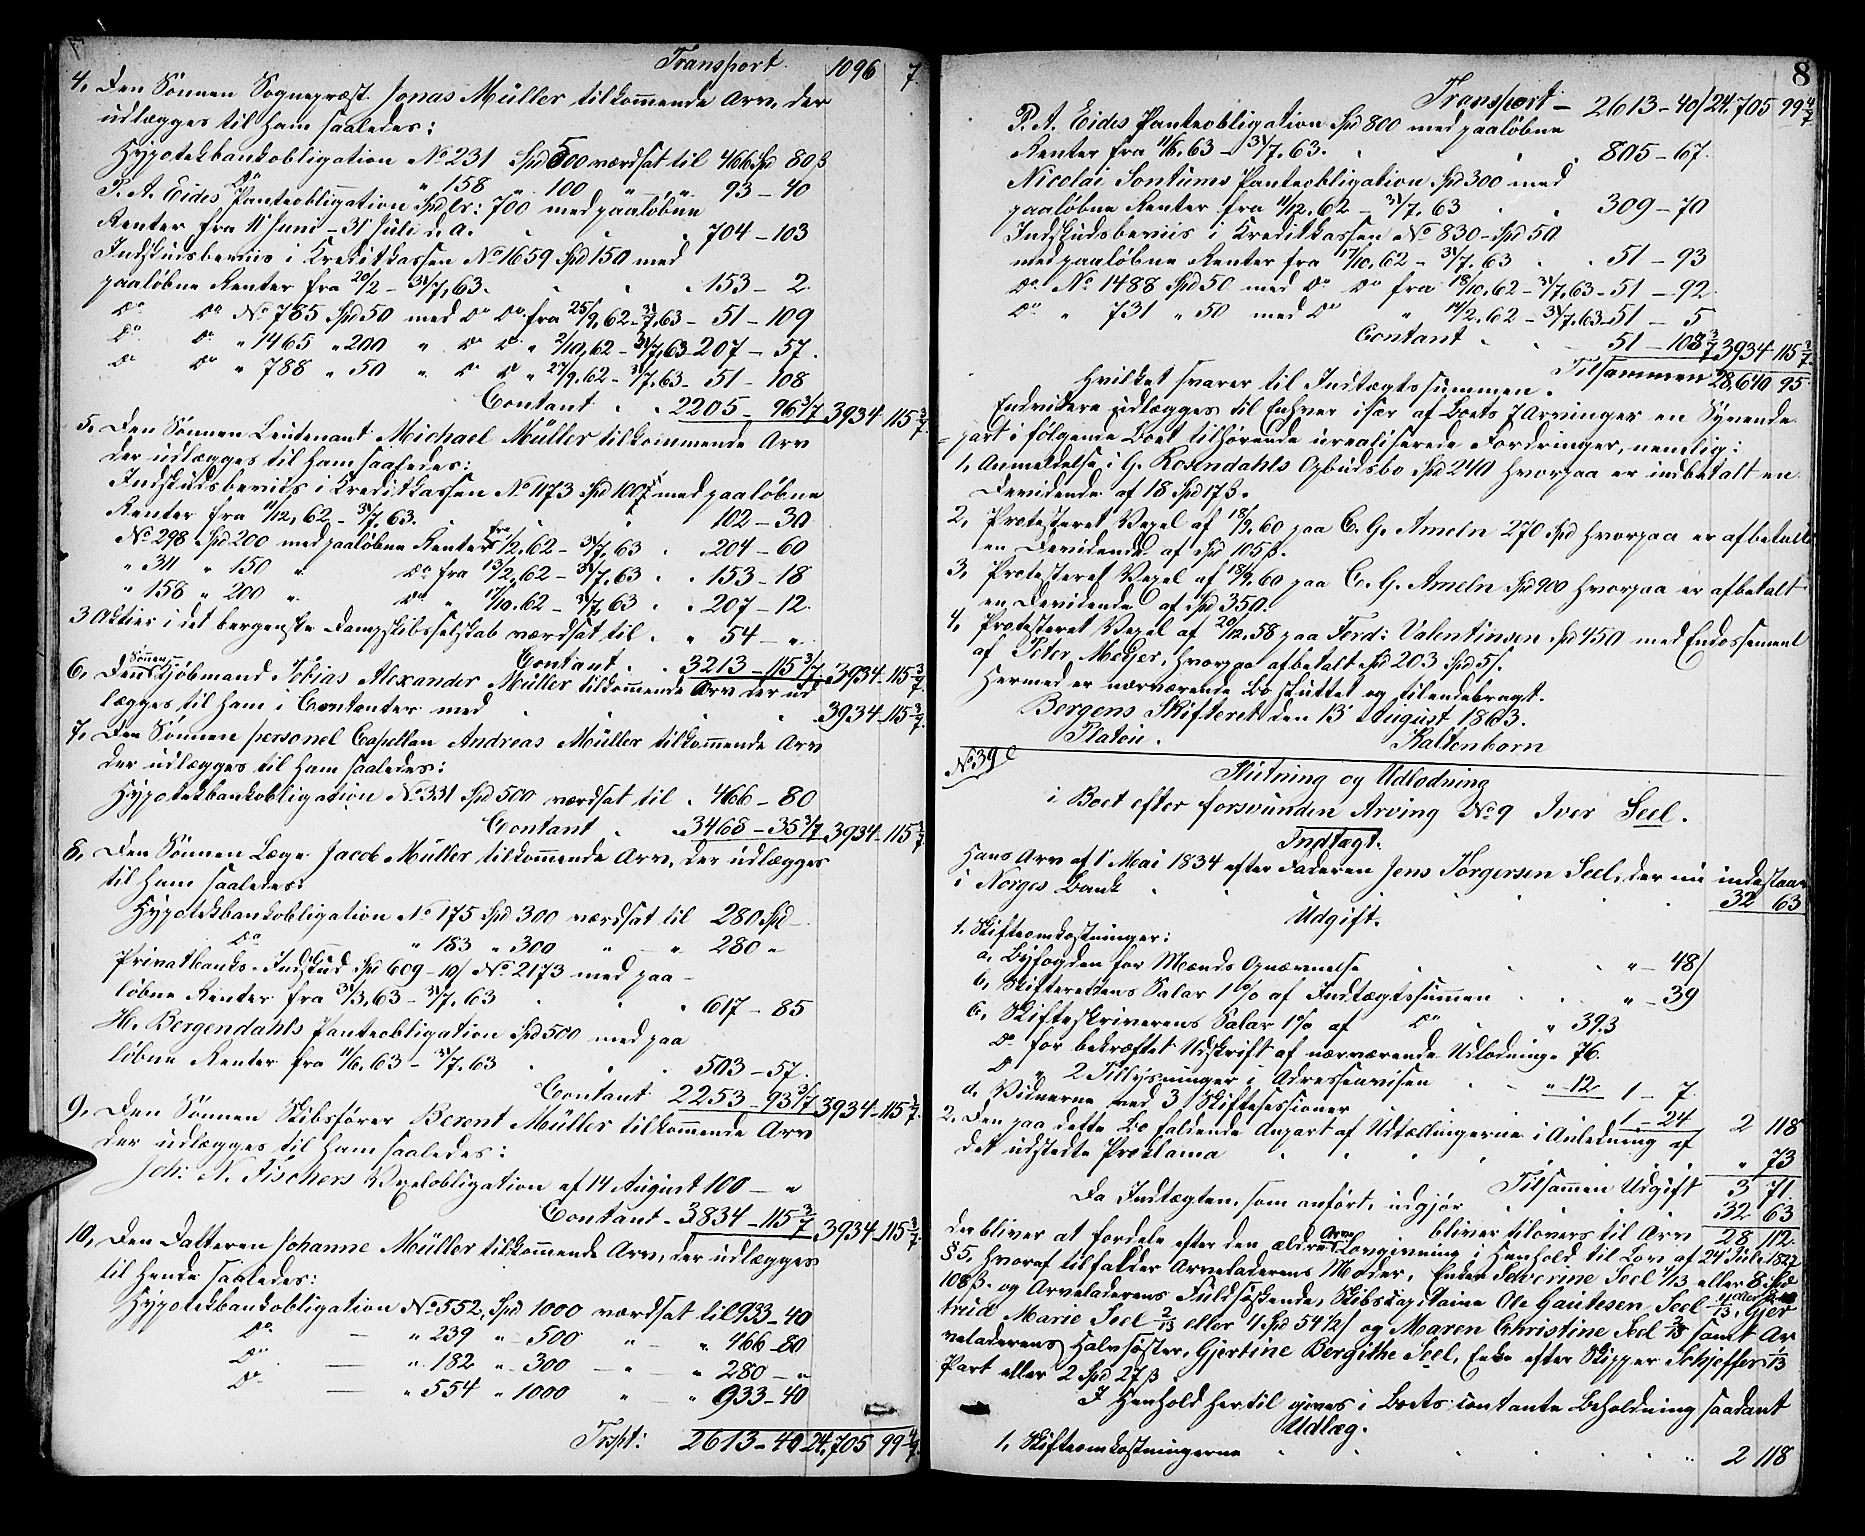 Transport. 1096 7.
4, Den Sönnen Sognepræst Jonas Müller tilkommende Arv, der
udlægges til ham saaledes:
Hypotekbankobligation No 231 Spd 500 værdsat til 466 Spd 80 ß
Do " 158 " 100 " " 93 – 40
P. A. Eides Panteobligation Spdlr: 700 med paaløbne
Renter fra 11 Juni – 31 Juli d. A. 704 – 103
Indskudsbeviis i Kreditkassen No 1659 Spd 150 med
paaløbne Renter fra 20/2 – 31/7, 63. 153 – 2
Do Do No 785 Spd 50 med Do Do fra 25/9, 62 – 31/7, 63 – 51 – 109
Do Do " 1465 " 200 " Do Do " 2/10, 62 – 31/7, 63 – 207 – 57.
Do Do " 788 " 50 " Do Do " 27/9, 62 – 31/7, 63 – 51 – 108
Contant . . 2205 – 96 3/7 3934 – 115 3/7
5, Den Sönnen Leutenant Michael Müller tilkommende Arv
der udlægges til ham saaledes:
Indskudsbeviis i Kreditkassen No 1173 Spd 100 med paaløbne
Renter fra 11/12, 62 – 31/7, 63. 102 – 30
No 298 Spd 200 med paaløbne Renter fra 1/2, 62 – 31/7, 63 . 204 – 60
" 311 " 150 " Do fra 13/2, 62 – 31/7, 63 . 153 – 18
" 158 " 200 " Do " 17/10, 62 – 31/7, 63 . 207 – 12.
3 Aktier i det bergenske Dampskibsselskab værdsat til . " 54 – "
Contant . . 3213 – 115 3/7 3934 – 115 3/7
6, Den Sønnen Kjöbmand Tobias Alexander Müller tilkommende Arv der ud
lægges til ham i Contanter med . . . 3934 – 115 3/7
7, Den Sönnen personel Capellan Andreas Müller tilkommende Arv
der udlægges til ham saaledes:
Hypotekbankobligation No 331 Spd 500 værdsat til . 466 – 80
Contant . . 3468 – 35 3/7 3934 – 115 3/7
8, Den Sönnen Læge Jacob Müller tilkommende Arv, der udlægges
til ham saaledes:
Hypotekbankobligation No 175 Spd 300 værdsat til 280 Spd –
Do " 183 " 300 " " 280 "
Privatbanks-Indskud Spd 609 – 10 / No 2173 med paa-
løbne Renter fra 31/3, 63 – 31/7, 63 . 617 – 85
H. Bergendahls Panteobligation Spd 500 med paa
løbne Renter fra 11/6, 63 – 31/7, 63 . 503 – 57.
Contant 2253 – 93 3/7 3934 – 115 3/7
9, Den Sönnen Skibsfører Berent Müller tilkommende Arv
der udlægges til ham saaledes:
Joh: N. Fischers Vexelobligation af 14 August 100 – "
Contant – 3834 – 115 3/7 3934 – 115 3/7
10, Den Datteren Johanne Müller tilkommende Arv, der udlægges
til hende saaledes:
Hypotekbankobligation No 552, Spd 1000 værdsat til 933 – 40
Do – " 239 " 500 " " 466 – 80
Do – " 182 " 300 – " " 280 – "
Do – " 554 " 1000 " " 933 – 40
Trspt: 2613 – 40 24,705 99 4/7
8
Transport – 2613 – 40 / 24,705 99 4/7
P. A. Eides Panteobligation Spd 800 med paaløbne
Renter fra 11/6, 63 – 31/7, 63. . . 805 – 67.
Nicolai Sontums Panteobligation Spd 300 med
paaløbne Renter fra 11/12, 62 – 31/7, 63 . . 309 – 70
Indskudsbeviis i Kreditkassen No 830 – Spd 50
med paaløbne Renter fra 17/10, 62 – 31/7, 63 . . 51 – 93
Do No 1488 Spd 50 med Do Do fra 18/10, 62 – 31/7, 63 – 51 – 92
Do " 731 " 50 med Do " 14/2, 62 – 31/7, 63 – 51 – 5
Contant . 51 – 108 3/7 3934 – 115 3/7
Tilsammen 28,640 95
Hvilket svarer til Indtægtssummen.
Endvidere udlægges til Enhver især af Boets 7 Arvinger en Syvende-
part i følgende Boet tilhørende urealiserede Fordringer, nemlig:
1, Anmeldelse i G. Rosendahls Opbudsbo Spd 240 hvorpaa er indbetalt en
Devidende af 18 Spd 17 ß.
2, Protesteret Vexel af 18/9, 60 paa C. G. Ameln 270 Spd hvorpaa er afbetalt
en Devidende af Spd 105 ß.
3, Protesteret Vexel af 18/9, 60 paa C. G. Ameln Spd 900 hvorpaa er afbetalt
en Devidende af Spd 350.
4, Protesteret Vexel af 20/12, 58 paa Ferd: Valentinsen Spd 450 med Endossement
af Peter Meyer, hvorpaa afbetalt Spd 203 Spd 5 /.
Hermed er nærværende Bo sluttet og tilendebragt.
Bergens Skifteret den 13 August 1863.
Platou. Kaltenborn
No 39 C
Slutning og Udlodning
i Boet efter forsvunden Arving No 9 Iver Seel.
Indtægt.
Hans Arv af 1 Mai 1834 efter Faderen Jens Törgersen Seel, der nu indestaar
i Norges Bank . . . 32 63
Udgift.
1, Skifteomkostninger:
a, Byfogden for Mænds Opnævnelse . . . " – 48 /
b, Skifterettens Salar 1 % af Indtægtssummen . . " – 39
c, Skifteskriverens Salar 1 % af Do . " 39.3
Do for bekræftet Udskrift af nærværende Udlodning " 76.
Do " 2 Tillysninger i Adresseavisen . " 12 1 – 7.
d, Vidnerne ved 3 Skiftesessioner 1 – 24 2 118
2, Den paa dette Bo faldende Anpart af Udtællingerne i Anledning af
det udstedte Proklama . . . " 73
Tilsammen Udgift 3 71.
Da Indtægten, som anført, udgjør . 32 63
bliver tilovers til Arv 28 112.
der bliver at fordele efter den ældre Arve Lovgivning i Henhold til Lov af 24 Juli 1827
§ 5, hvoraf tilfalder Arveladerens Moder, Enke Severine Seel 4/13 eller 8 Spd
108 ß. og Arveladerens Fuldsøskende, Skibskaptaine Ole Gautesen Seel 4/13, Gjer
trud Marie Seel 2/13 eller 4 Spd 54 1/2 / og Maren Christine Seel 2/13 samt Ar
veladerens Halvsøster, Gjertine Bergithe Seel, Enke efter Skipper Schjeffer 1/13
Part eller 2 Spd 27 ß.
I Henhold hertil gives i Boets contante Beholdning saadant
Udlæg.
1, Skifteomkostningerne . . . 2 118